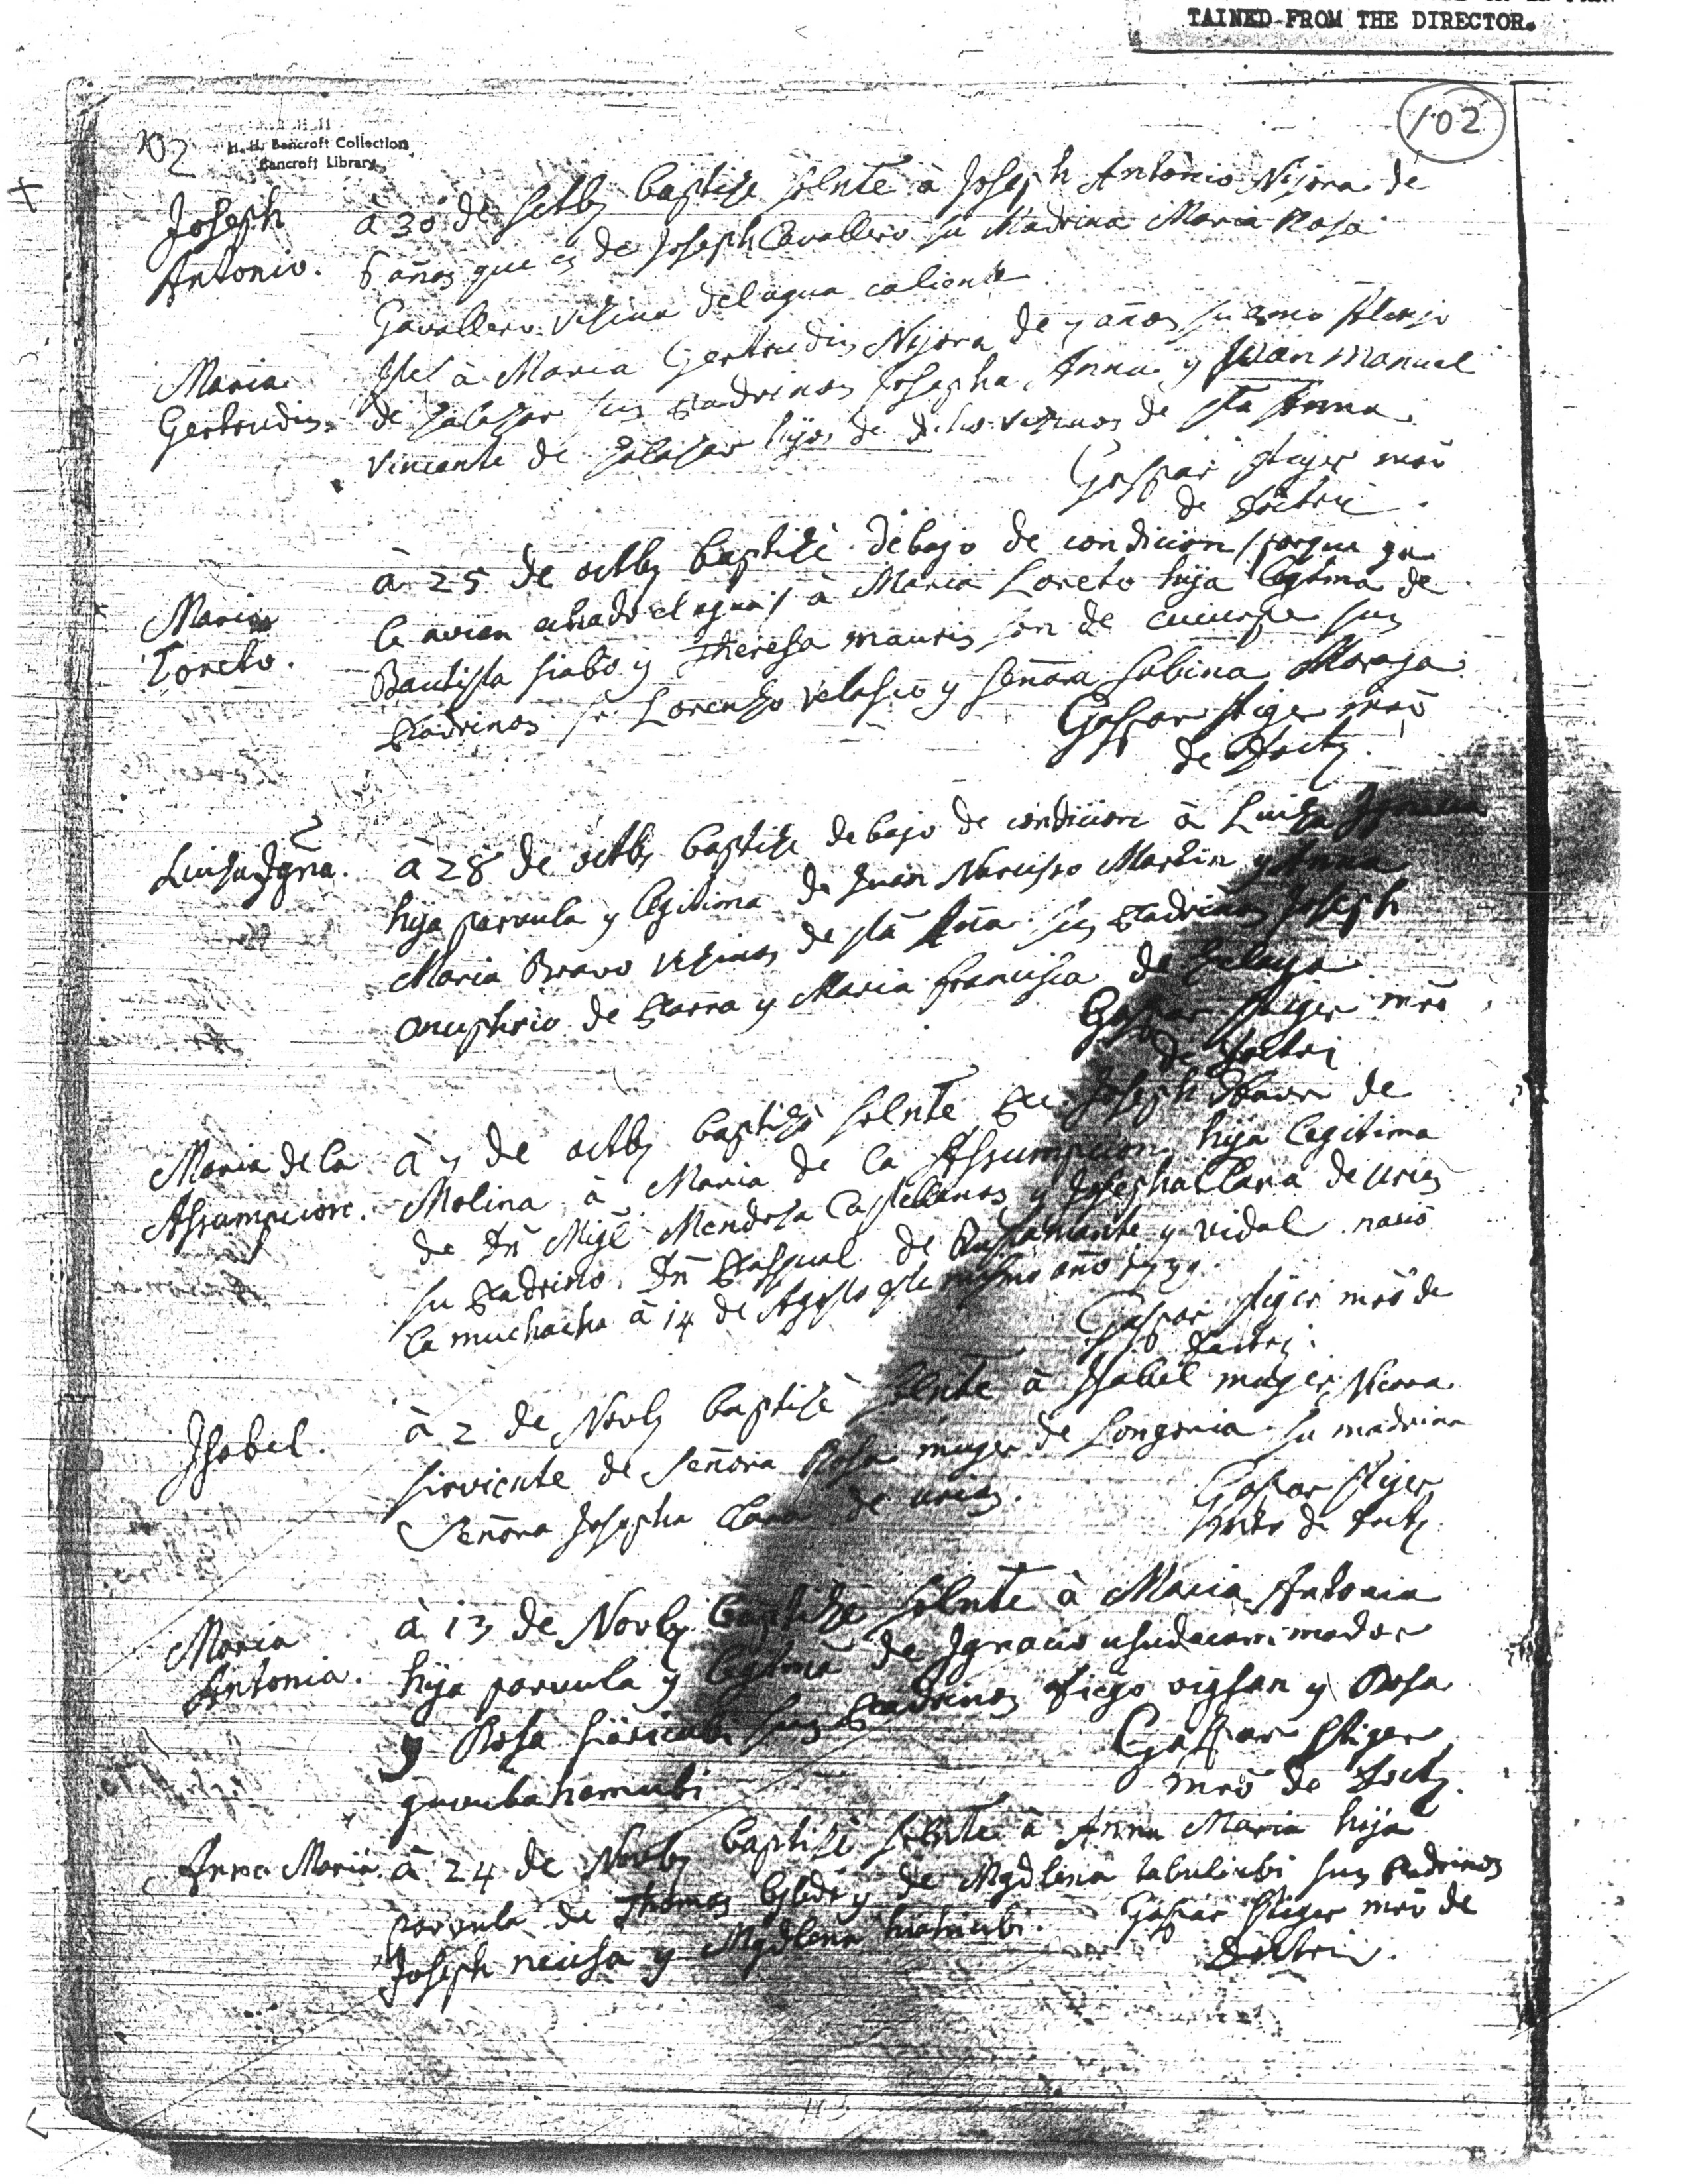 TAINED FROM THE DIRECTOR.
102
102
H. H. Bancroft Collection
Bancroft Library
Joseph
Antonio.
à 30 de Setbz baptizè solnte à Joseph Antonio Nijora de
6 años que es de Joseph Cavallero su Madrina Maria Rosa
Gavallero vesina del agua caliente.
Maria
Gertrudis.
Itel à Maria Gertrudis Nijora de 7 años su amo
de Salasar sus Padrinos Josepha Anna y Juan Manuel
vincente de Salasar hijos de dicho vesinos de Sta Anna.
Gaspar Stiger mro
de doctri.
Maria
Loreto.
à 25 de octbz baptizè debajo de condicion / porque ya
le avian echado el agua / à Maria Loreto hija legtma de
Bautista siabo y Theresa mauris son de cucurpe sus
Padrinos sr Lorenzo velasco y señora Sabina Moraga.
Gaspar Stiger mro
de doctz.
Luisa Igna.
à 28 de octbz baptizè debajo de condicion à Luiza Ignacia
hija parvula y legitima de Juan Narcisso Martin y Anna
Maria Bravo vesinos de sta Ana sus Padrinos Joseph
onuphrio de Parra y Maria francisca de
Gaspar Stiger mro
de doctri
Maria de la
Assumpcion.
à 7 de octbz baptizò solnte Pe Joseph Xavr de
Molina à Maria de la Assumpcion hija legitima
de Dn Migl Mendosa Castellanos y Josepha Clara de urias
su Padrino Dn Pasqual de Bustamante y vidal nació
la muchacha à 14 de Agosto este mismo año
Gaspar Stiger mro de
doctri.
Isabel.
à 2 de Novbz baptizè solnte à Isabel muger Nixora
sirviente de Señora Rosa muger de Longoria su madrina
Señora Josepha Clara de urias.
Gaspar Stiger
mro de doctz.
Maria
Antonia.
à 13 de Novbz baptizè solnte à Maria Antonia
hija parvula y legtma de Ignacio
y Rosa sus Padrinos Diego y Rosa
Gaspar Stiger
mro de doctz.
Anna Maria.
à 24 de Novbz baptizè solnte à Anna Maria hija
parvula de Thomas y de Mgdlena sus Padrinos
Joseph y Mgdlena
Gaspar Stiger mro de
doctri.